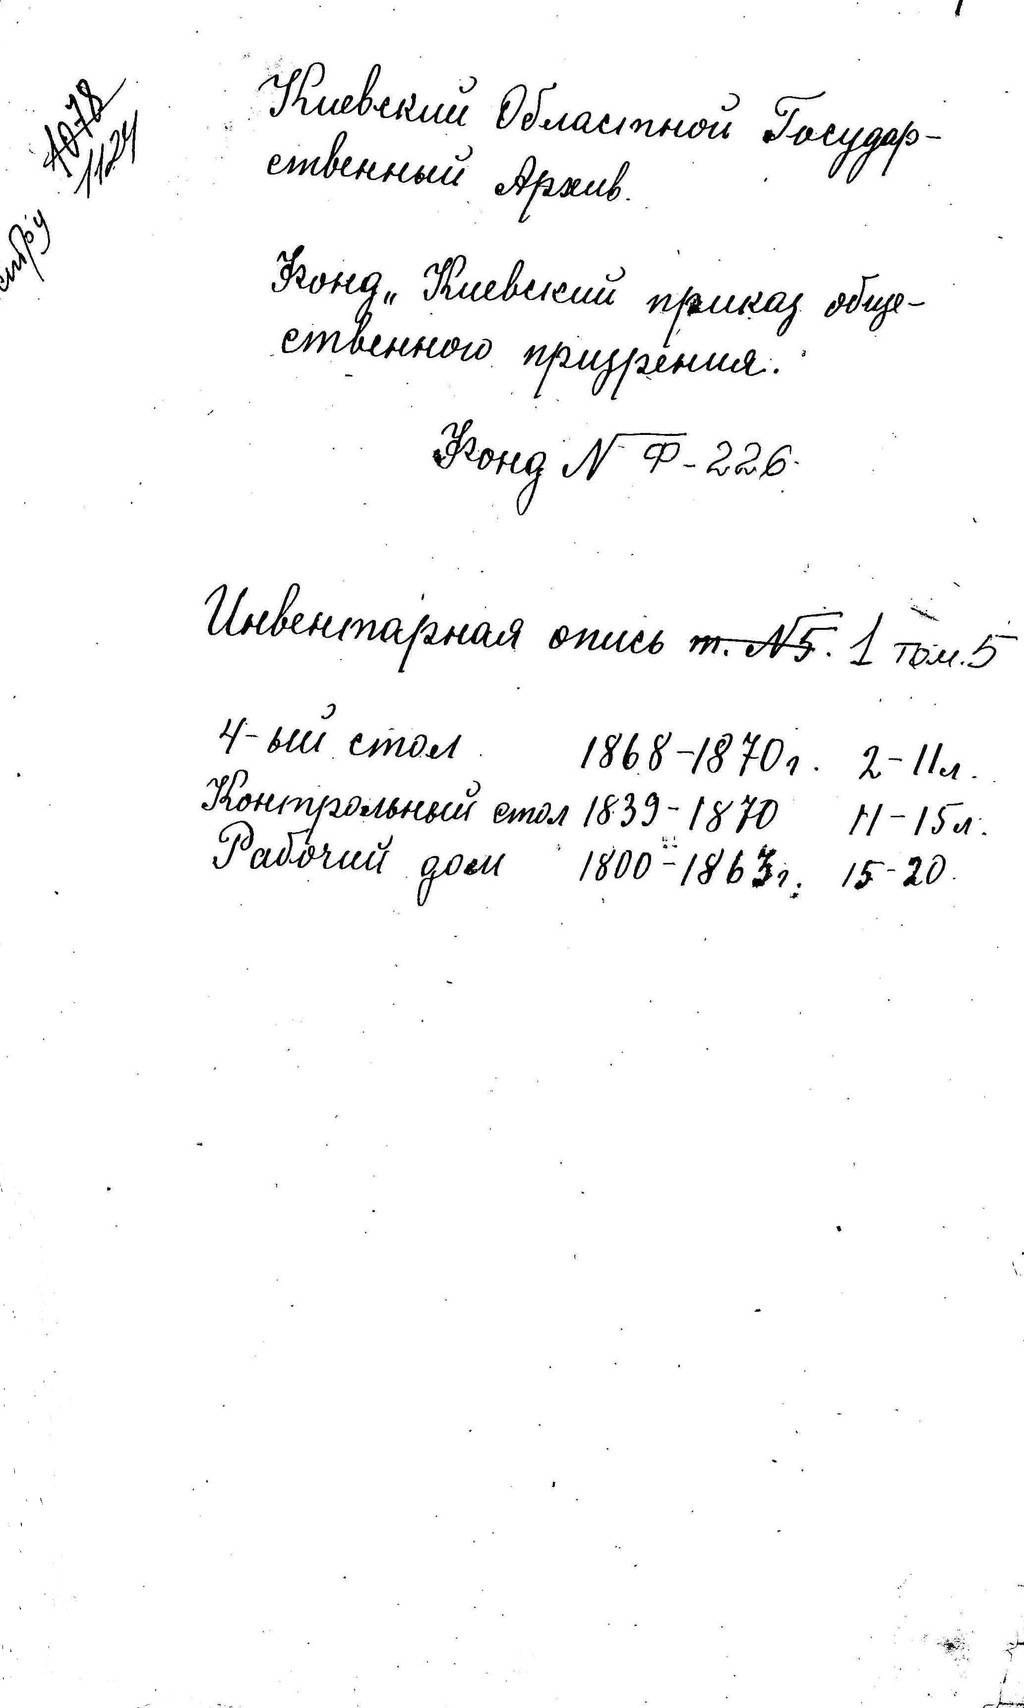 1078
1124
Киевский Областной Государ-
ственный Архив.
Фонд „Киевский приказ обще-
ственного призрения.
Фонд № Ф-226.
Инвентарная опись т. №5. 1 том. 5
4-ый стол 1868-1870 г. 2-11 л.
Контрольный стол 1839-1870 11-15 л.
Рабочий дом 1800-1863 г. 15-20.